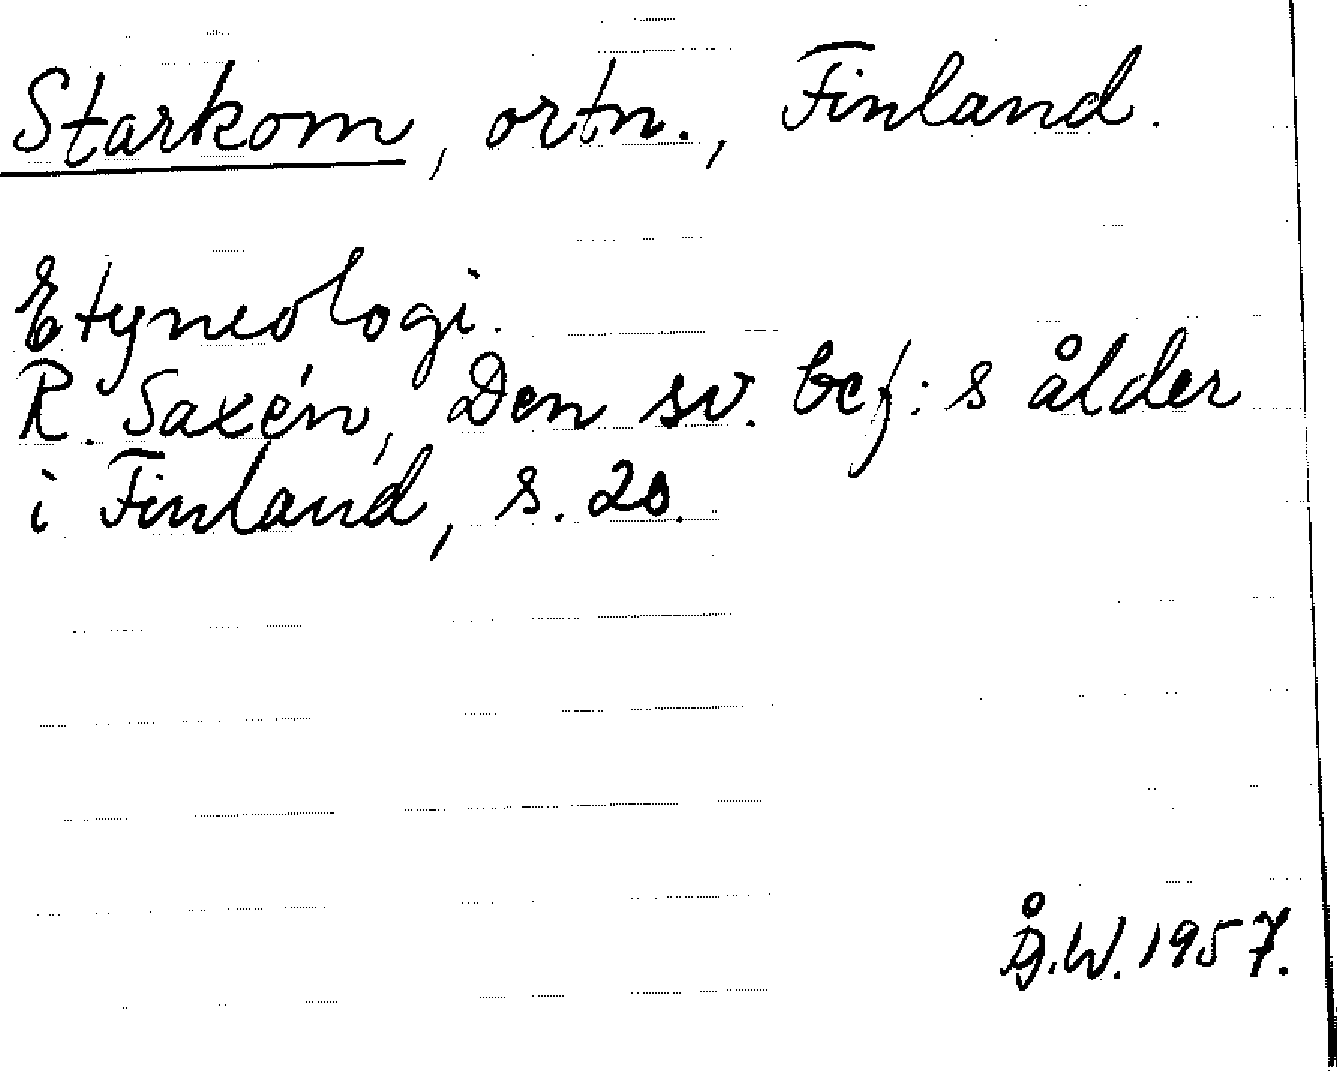 Starkom, ortn., Finland.
Etymologi.
R. Saxén, Den sv. bef:s ålder
i Finland, s. 20.
Å.W. 1957.